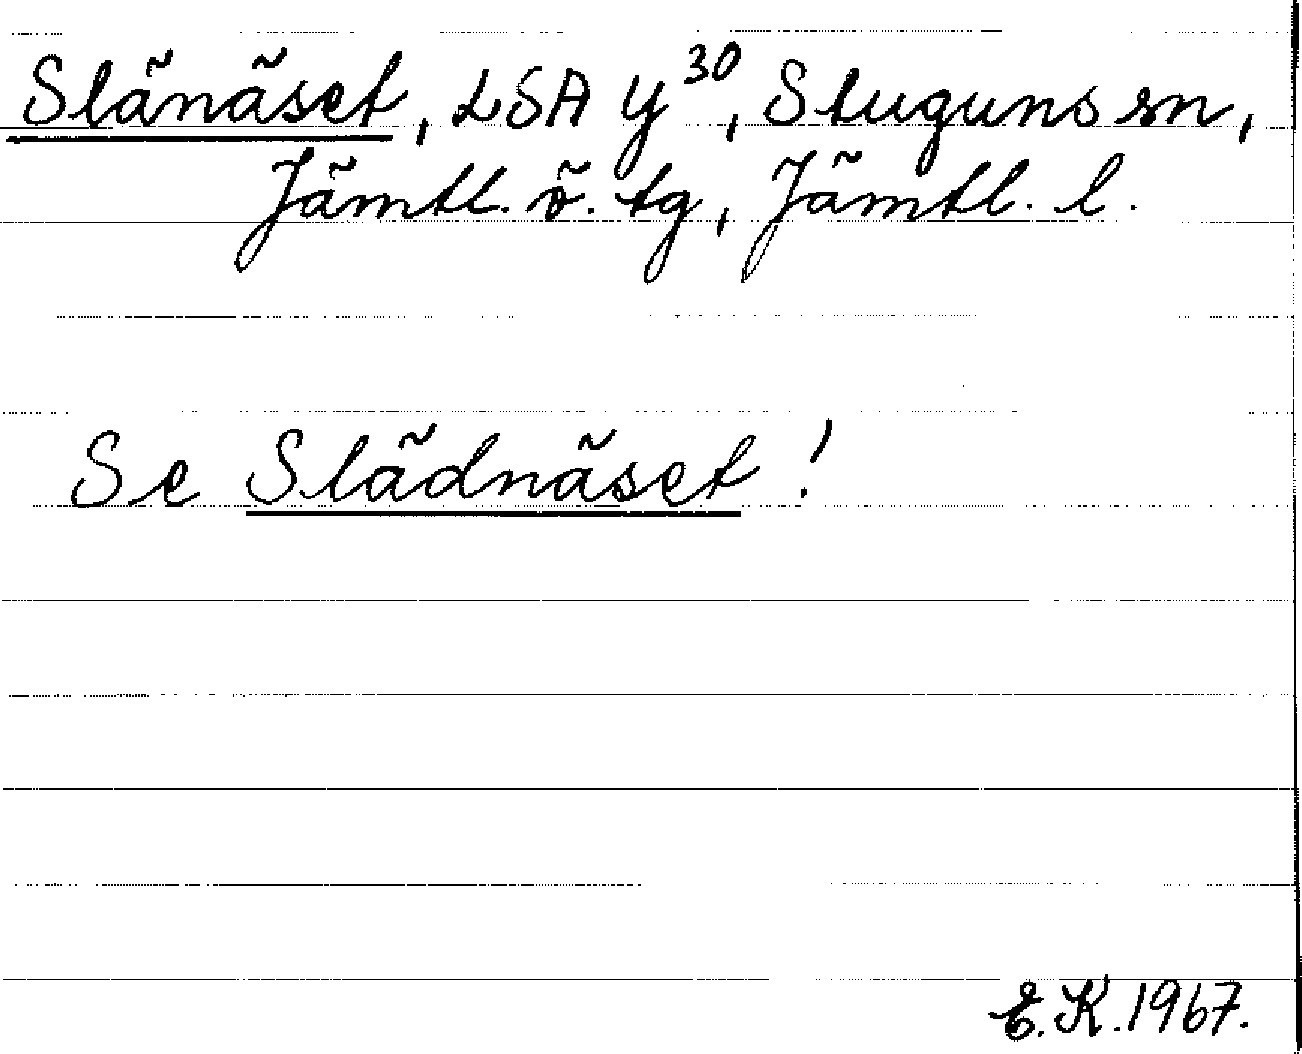 Slänäset, LSA Y³⁰, Stuguns sn,
Jämtl. ö. tg, Jämtl. l.
Se Slädnäset!
E.K. 1967.